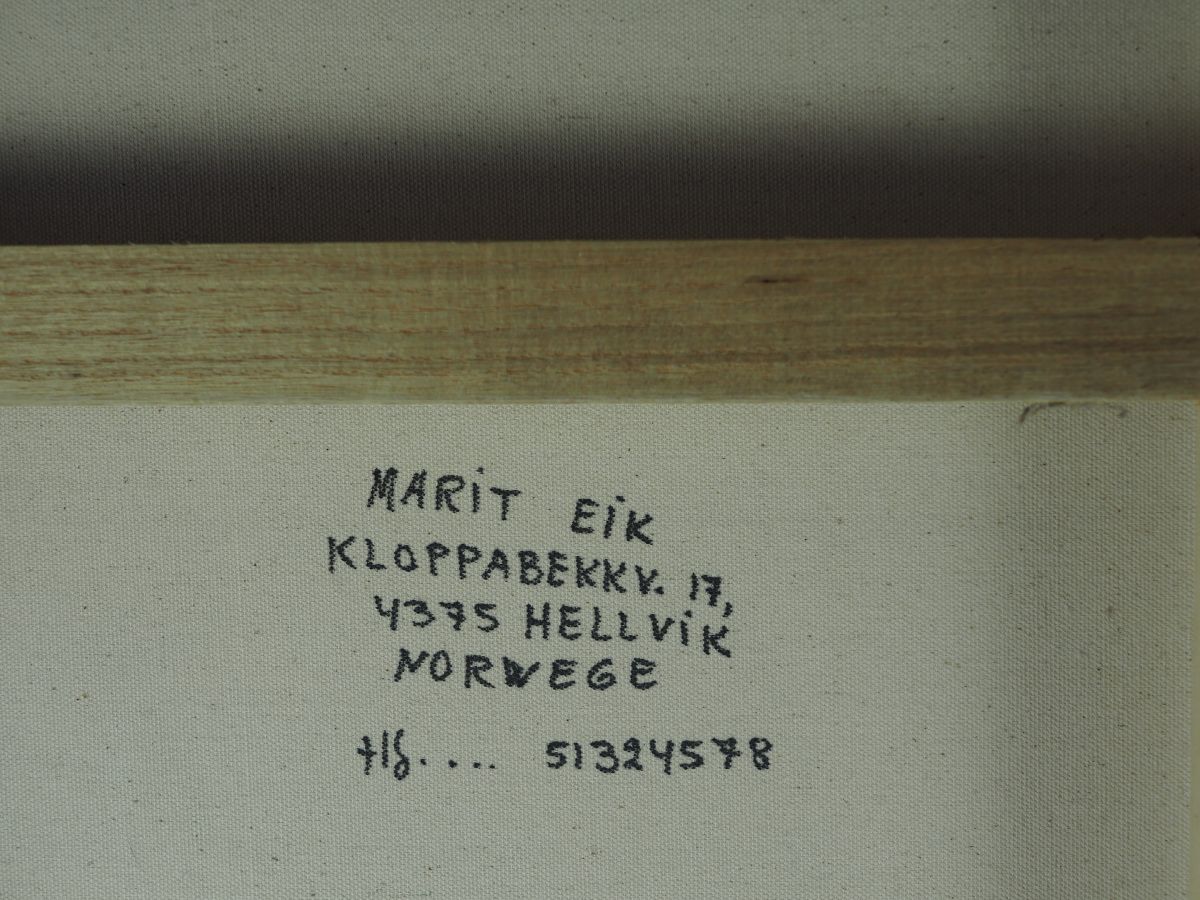 MARiT EiK
KLOPPABEKKV. 17,
4375 HELLViK
NORWEGE
tlf.... 51324578